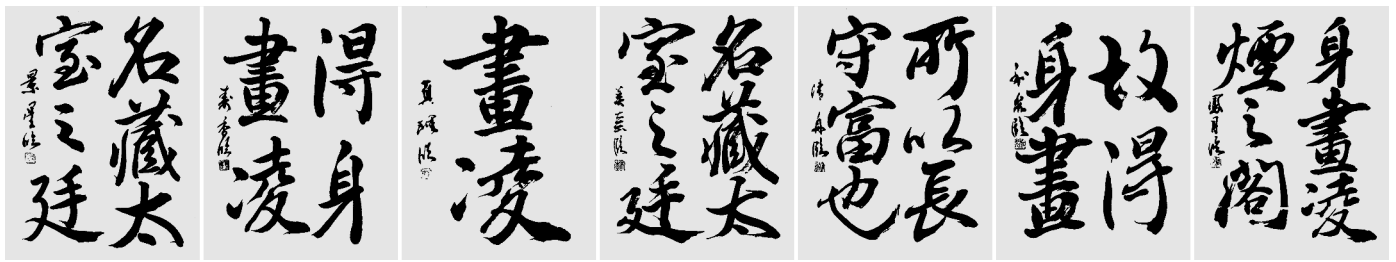 名藏太
室之廷
景星臨
得身
畫凌
壽香臨
畫凌
真理臨
名藏太
室之廷
美辰臨
所以長
守富也
清舟臨
故得
身畫
身畫凌
煙之閣
鳳月臨